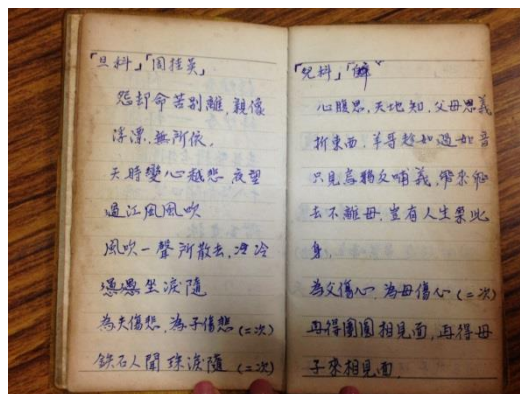 「旦科」「周桂英」
怨却命苦別離，親像
浮漂，無所依，
天時變心越悲 夜望
過江風風吹
風吹一聲所散去，冷冷
憑憑坐淚隨
為夫傷悲，為子傷悲（=次）
鉄石人聞 珠淚隨（=次）
「兒科」「
心腹思，天地知，父母恩義
折東西，羊哥 如過如音
只見烏鴉反哺義，飛來
去不離母，豈有人生 此
身，
為父傷心，為母傷心（=次）
再得團圓相見面，再得母
子來相見面